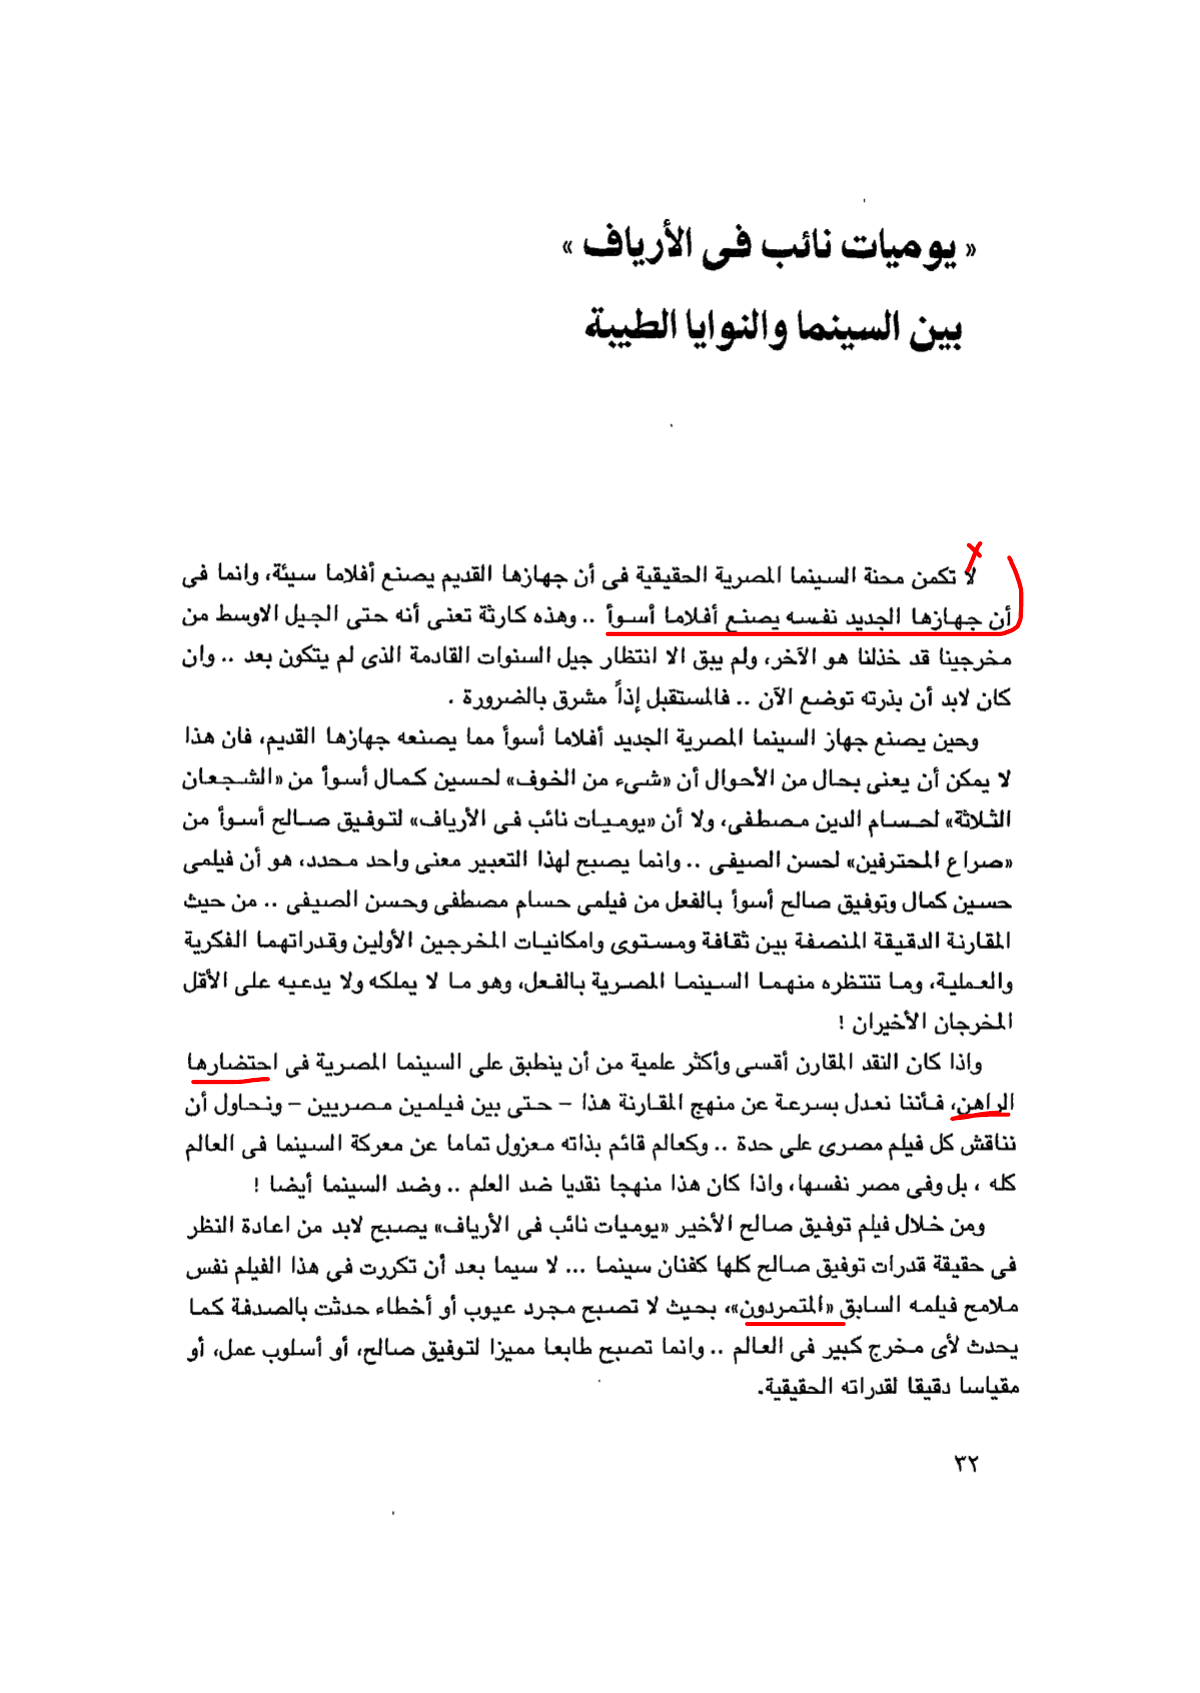 « يوميات نائب فى الأرياف »
بين السينما والنوايا الطيبة
لا تكمن محنة السينما المصرية الحقيقية فى أن جهازها القديم يصنع أفلاما سيئة، وانما فى
أن جهازها الجديد نفسه يصنع أفلاما أسوأ .. وهذه كارثة تعنى أنه حتى الجيل الاوسط من
مخرجينا قد خذلنا هو الآخر، ولم يبق الا انتظار جيل السنوات القادمة الذى لم يتكون بعد .. وان
كان لابد أن بذرته توضع الآن .. فالمستقبل إذاً مشرق بالضرورة .
وحين يصنع جهاز السينما المصرية الجديد أفلاما أسوأ مما يصنعه جهازها القديم، فان هذا
لا يمكن أن يعنى بحال من الأحوال أن «شىء من الخوف» لحسين كمال أسوأ من «الشجعان
الثلاثة» لحسام الدين مصطفى، ولا أن «يوميات نائب فى الأرياف» لتوفيق صالح أسوأ من
«صراع المحترفين» لحسن الصيفى .. وانما يصبح لهذا التعبير معنى واحد محدد، هو أن فيلمى
حسين كمال وتوفيق صالح أسوأ بالفعل من فيلمى حسام مصطفى وحسن الصيفى .. من حيث
المقارنة الدقيقة المنصفة بين ثقافة ومستوى وامكانيات المخرجين الأولين وقدراتهما الفكرية
والعملية، وما تنتظره منهما السينما المصرية بالفعل، وهو ما لا يملكه ولا يدعيه على الأقل
المخرجان الأخيران !
واذا كان النقد المقارن أقسى وأكثر علمية من أن ينطبق على السينما المصرية فى احتضارها
الراهن، فأننا نعدل بسرعة عن منهج المقارنة هذا – حتى بين فيلمين مصريين – ونحاول أن
نناقش كل فيلم مصرى على حدة .. وكعالم قائم بذاته معزول تماما عن معركة السينما فى العالم
كله ، بل وفى مصر نفسها، واذا كان هذا منهجا نقديا ضد العلم .. وضد السينما أيضا !
ومن خلال فيلم توفيق صالح الأخير «يوميات نائب فى الأرياف» يصبح لابد من اعادة النظر
فى حقيقة قدرات توفيق صالح كلها كفنان سينما ... لا سيما بعد أن تكررت فى هذا الفيلم نفس
ملامح فيلمه السابق «المتمردون»، بحيث لا تصبح مجرد عيوب أو أخطاء حدثت بالصدفة كما
يحدث لأى مخرج كبير فى العالم .. وانما تصبح طابعا مميزا لتوفيق صالح، أو أسلوب عمل، أو
مقياسا دقيقا لقدراته الحقيقية.
٣٢